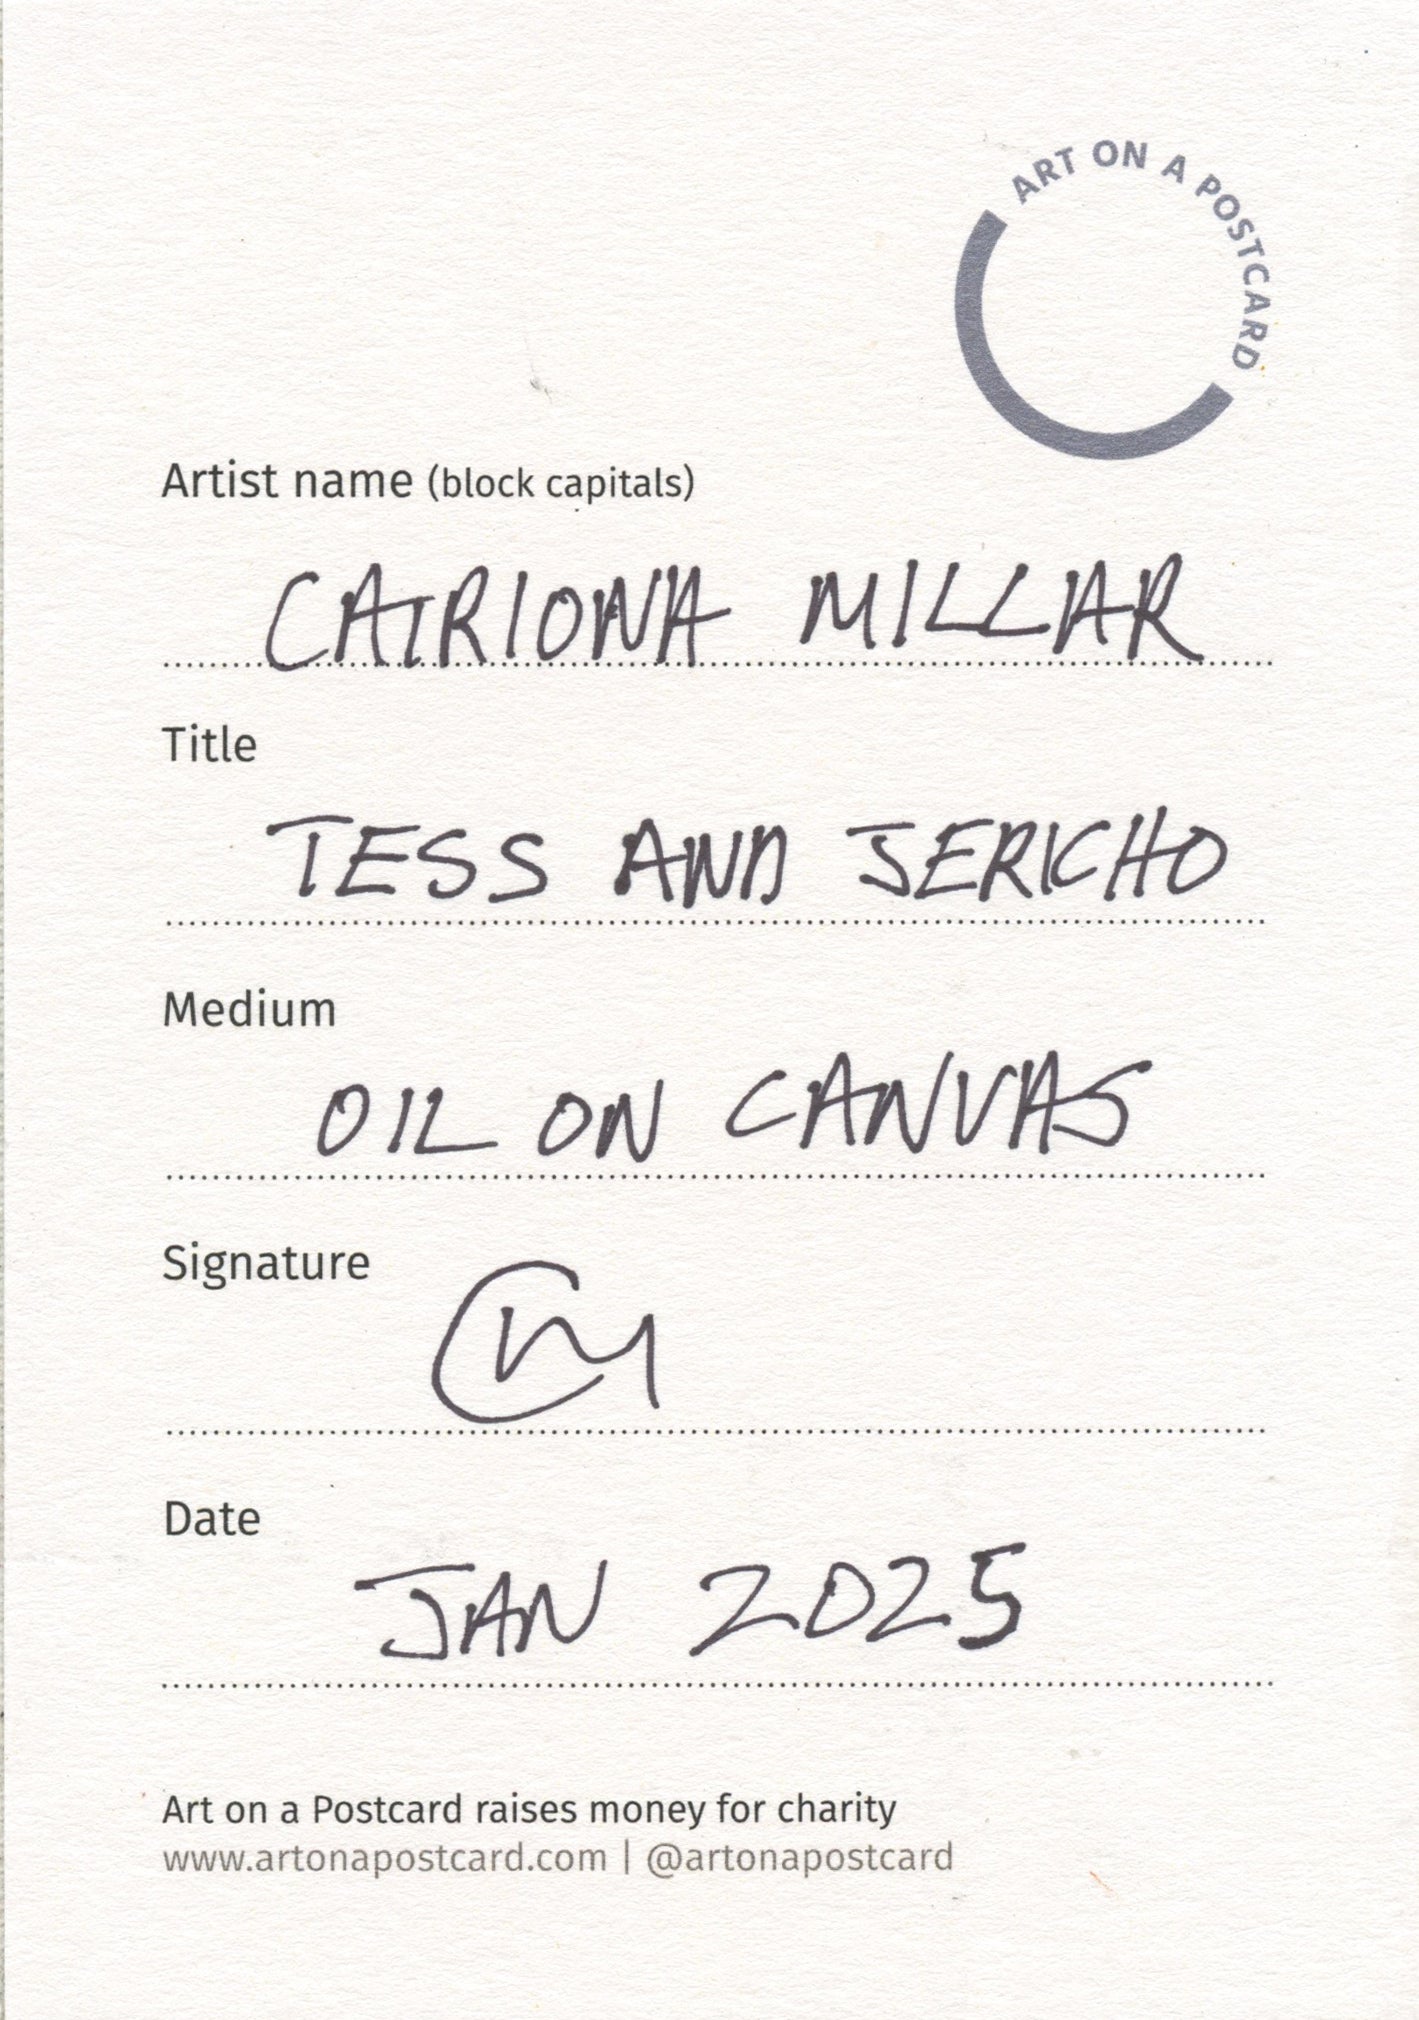 ART ON A POSTCARD
Artist name (block capitals)
CATRIONA MILLAR
Title
TESS AND JERICHO
Medium
OIL ON CANVAS
Signature
CM
Date
JAN 2025
Art on a Postcard raises money for charity
www.artonapostcard.com | @artonapostcard